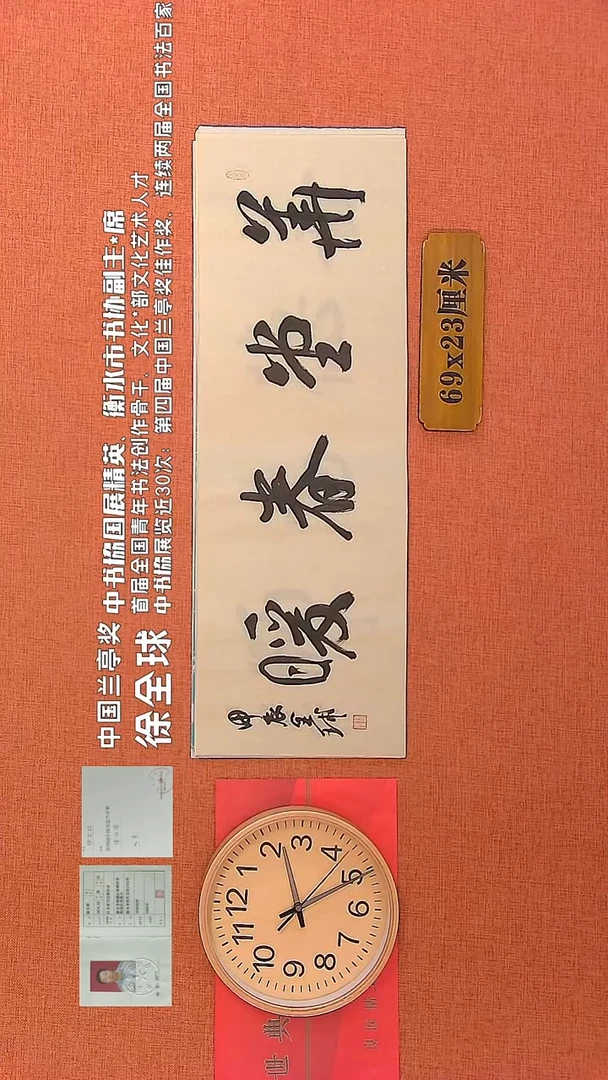 中国兰亭奖 中书协国展精英、衡水市书协副主*席
徐全球 首届全国青年书法创作骨干、文化*部文化艺术人才
中书协展览近30次；第四届中国兰亭奖佳作奖、连续两届全国书法百家
華堂春暖
甲辰全球
69x23厘米
12 1 2 3 4 5 6 7 8 9 10 11
世典